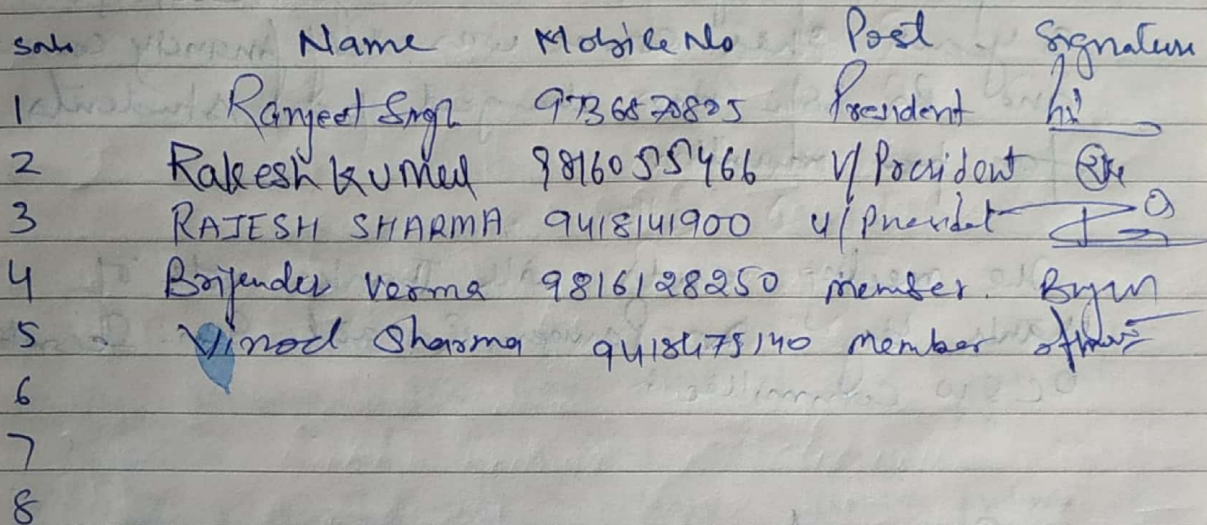 Name Mobile No Post Signature
1 Ranjeet Singh 9736870825 President
2 Rakesh kumar 9816055466 V/President
3 RAJESH SHARMA 9418141900 V/President
4 Brijender Verma 9816128250 member.
5 Vinod Sharma 9418475140 member
6
7
8